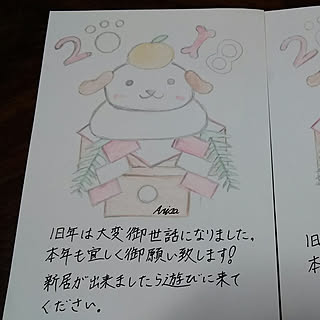 2018
Arisa
旧年は大変御世話になりました。
本年も宜しく御願い致します!
新居が出来ましたら遊びに来て
ください。